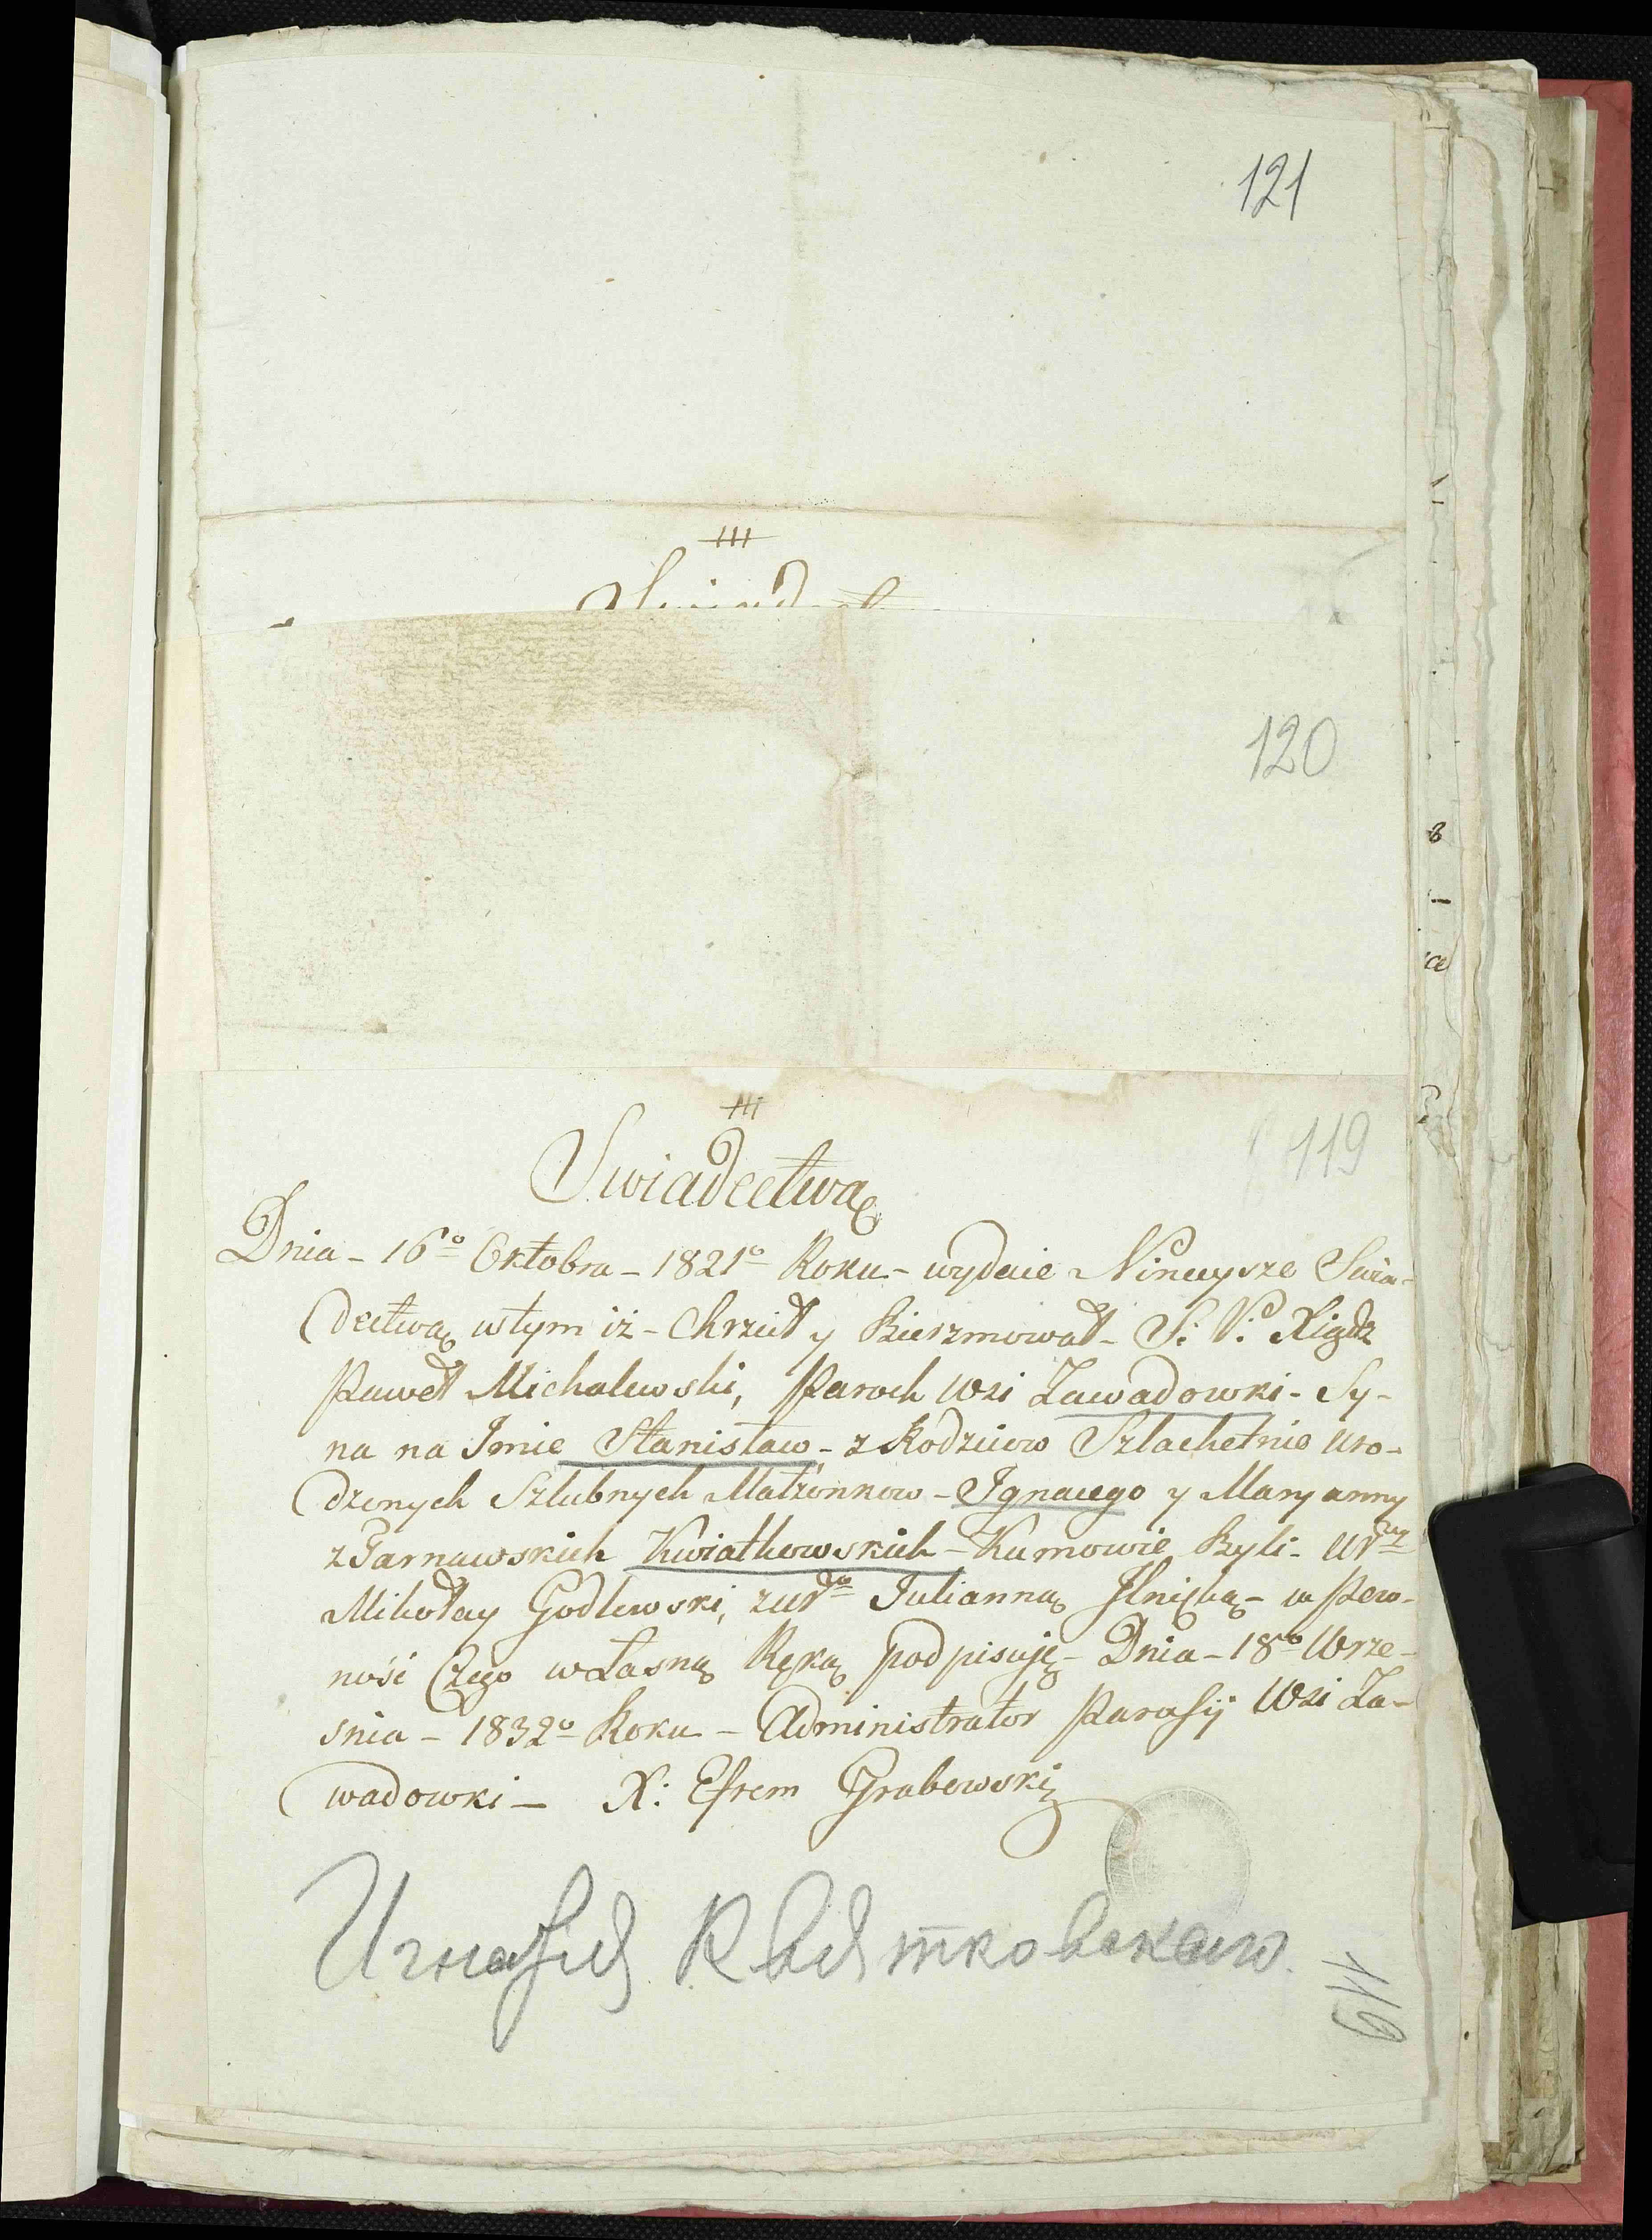 121
III
120
III
119
Swiadectwą
Dnia - 16º Oktobra - 1821º Roku - wydaie Nineysze Swia-
dectwą wtym iż - Chrzcił y Bierzmował - S: P: Xiądz
Paweł Michalewski, Paroch Wsi Zawadowki - Sy-
na na Imie Stanisław - z Rodziców Szlachetnie Uro-
dzonych Szlubnych Małżonkow - Ignacego y Maryanny
z Tarnawskich Kwiatkowskich - Kumowie Byli - Ur:
Mikołay Godlewski, z Ur: Julianną Ilnicką - w Pew-
ność Czego własną Ręką podpisuję - Dnia - 18º Wrze-
snia - 1832º Roku - Administrator Parafij Wsi Za-
wadowki - X: Efrem Grabowski
Игнація Квятковскаго
119